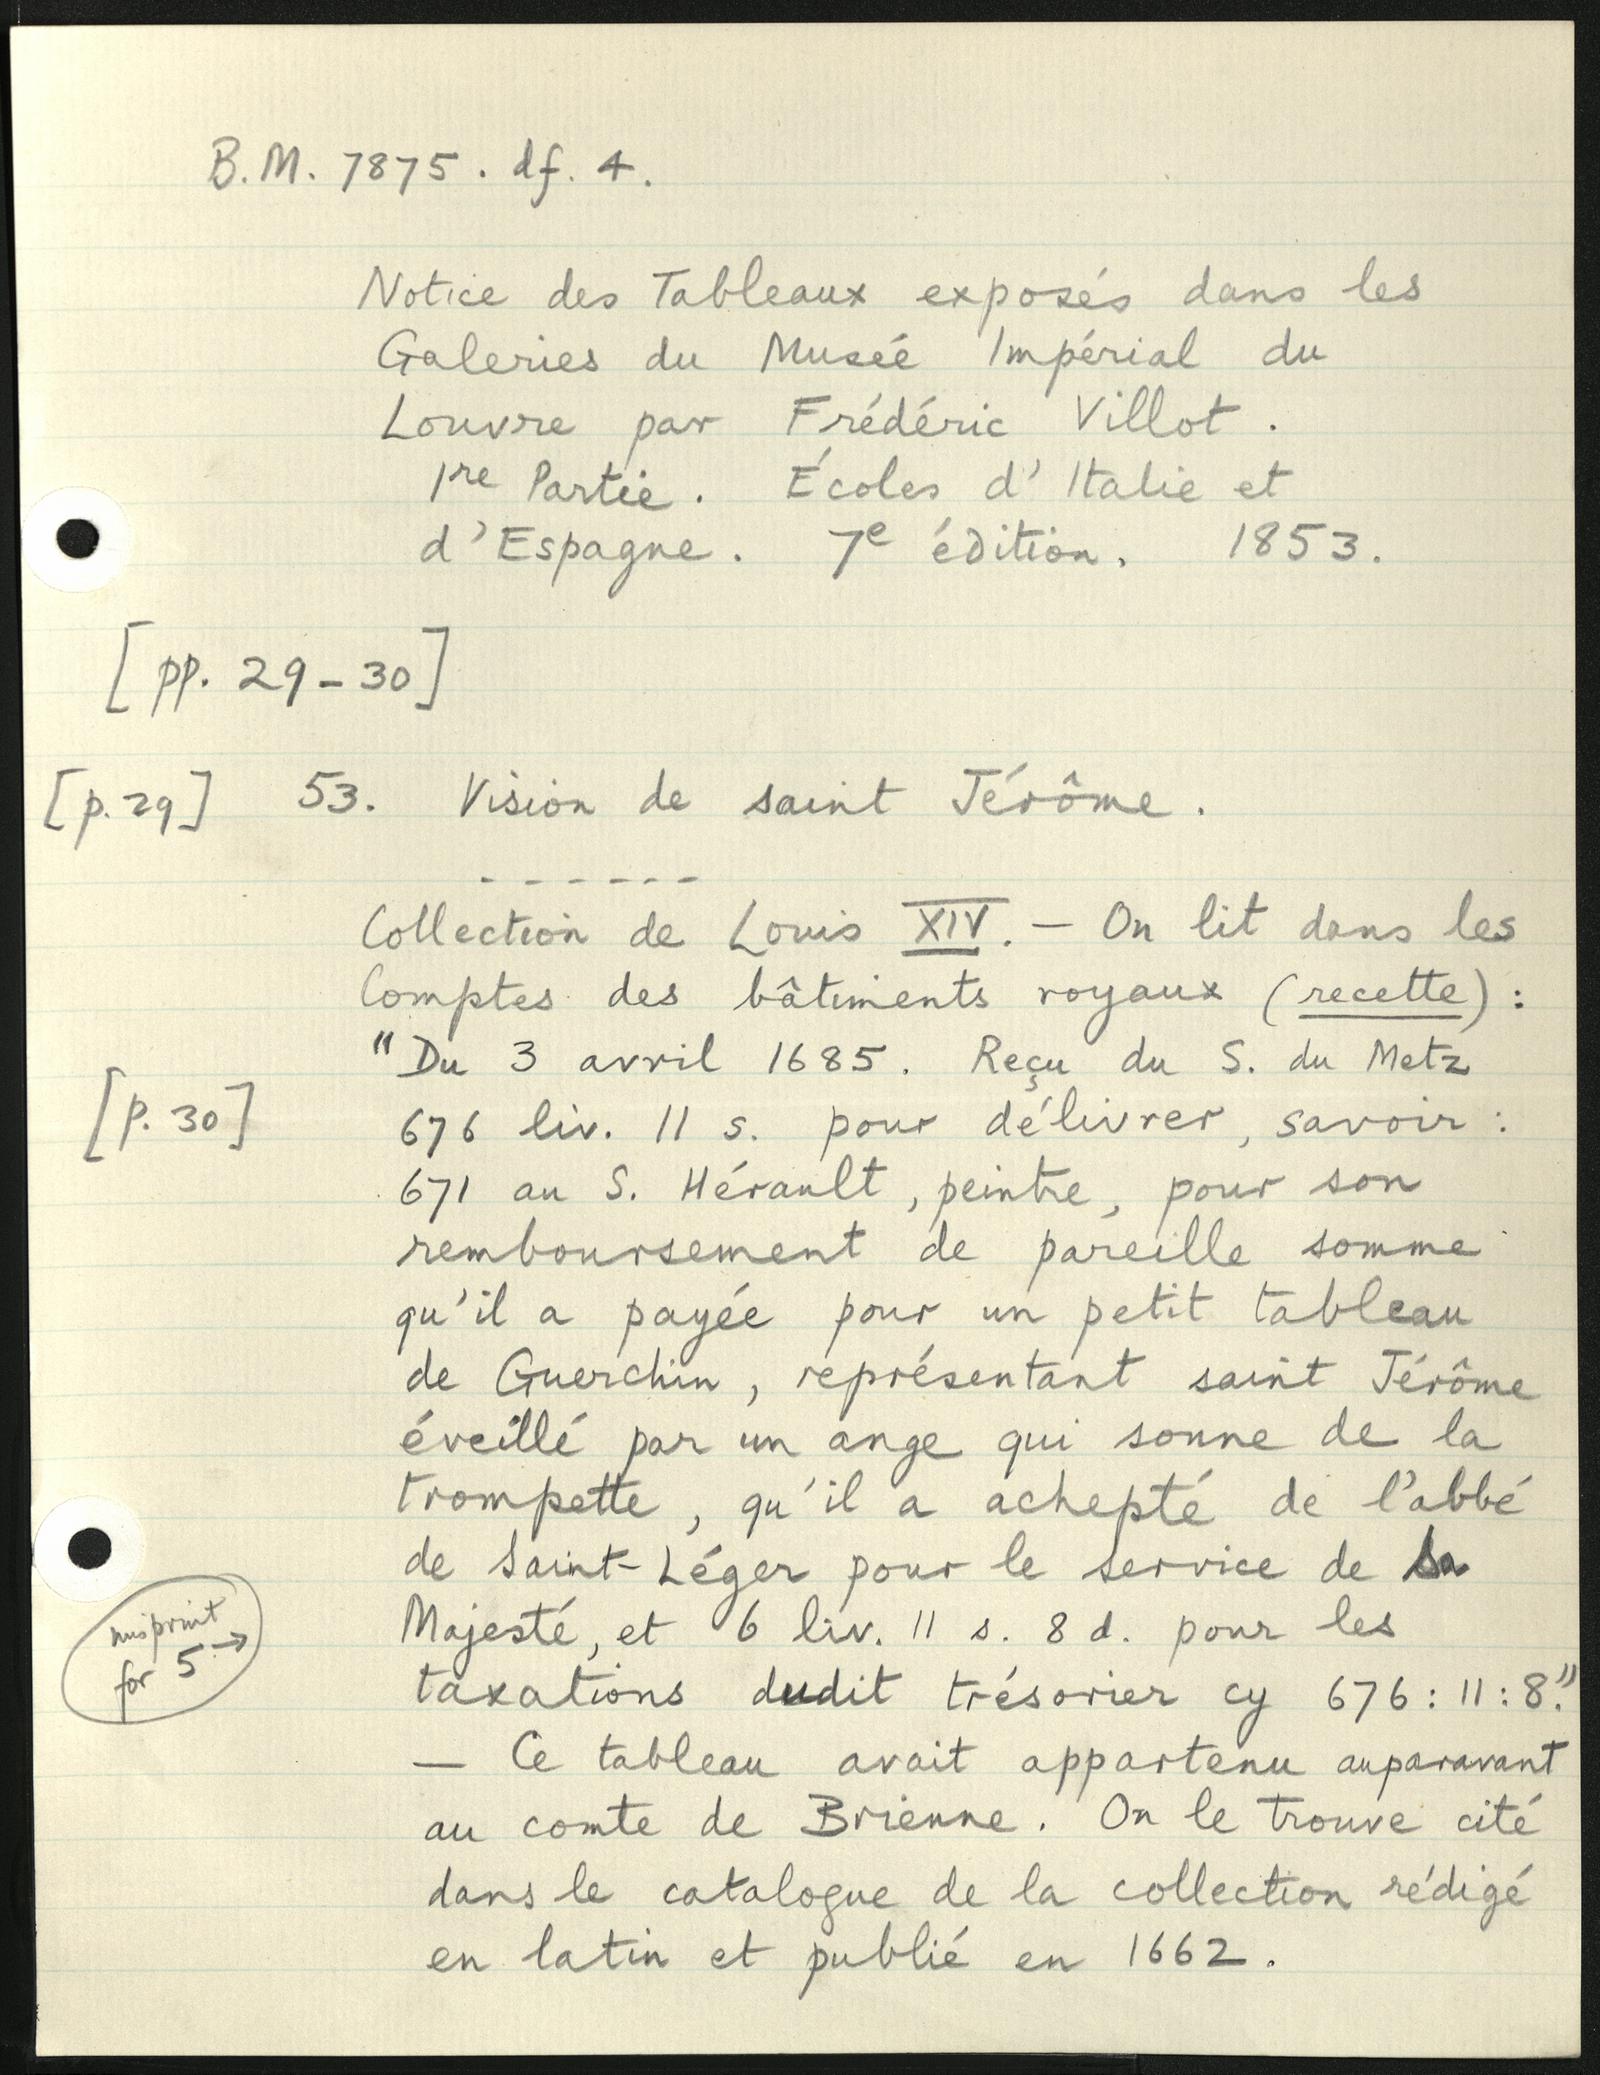 B.M. 7875. df. 4.
Notice des Tableaux exposés dans les
Galeries du Museé Impérial du
Louvre par Frédéric Villot.
1re Partie. Écoles d'Italie et
d'Espagne. 7e édition. 1853.
[pp. 29-30]
[p. 29] 53. Vision de saint Jérôme.
- - - - - -
Collection de Louis XIV. — On lit dans les
Comptes des bâtiments royaux (recette):
"Du 3 avril 1685. Reçu du S. du Metz
[p. 30] 676 liv. 11 s. pour délivrer, savoir:
671 au S. Hérault, peintre, pour son
remboursement de pareille somme
qu'il a payée pour un petit tableau
de Guerchin, représentant saint Jérôme
éveillé par un ange qui sonne de la
trompette, qu'il a achepté de l'abbé
de Saint-Léger pour le service de Sa
Majesté, et 6 liv. 11 s. 8 d. pour les
misprint
for 5 →
taxations dudit trésorier cy 676:11:8."
— Ce tableau avait appartenu auparavant
au comte de Brienne. On le trouve cité
dans le catalogue de la collection rédigé
en latin et publié en 1662.